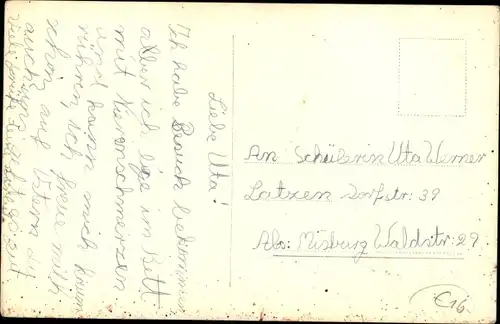 Liebe Uta!
Ich habe Besuch bekommen
aber ich lige im Bett
mit Nierenschmerzen
und kann mich kaum
rühren, ich freue mich
schon auf Ostern du
auch
Viele
An Schülerin Uta Werner
Latzen Dorfstr: 39
Abs: Misburg Waldstr: 29
C16